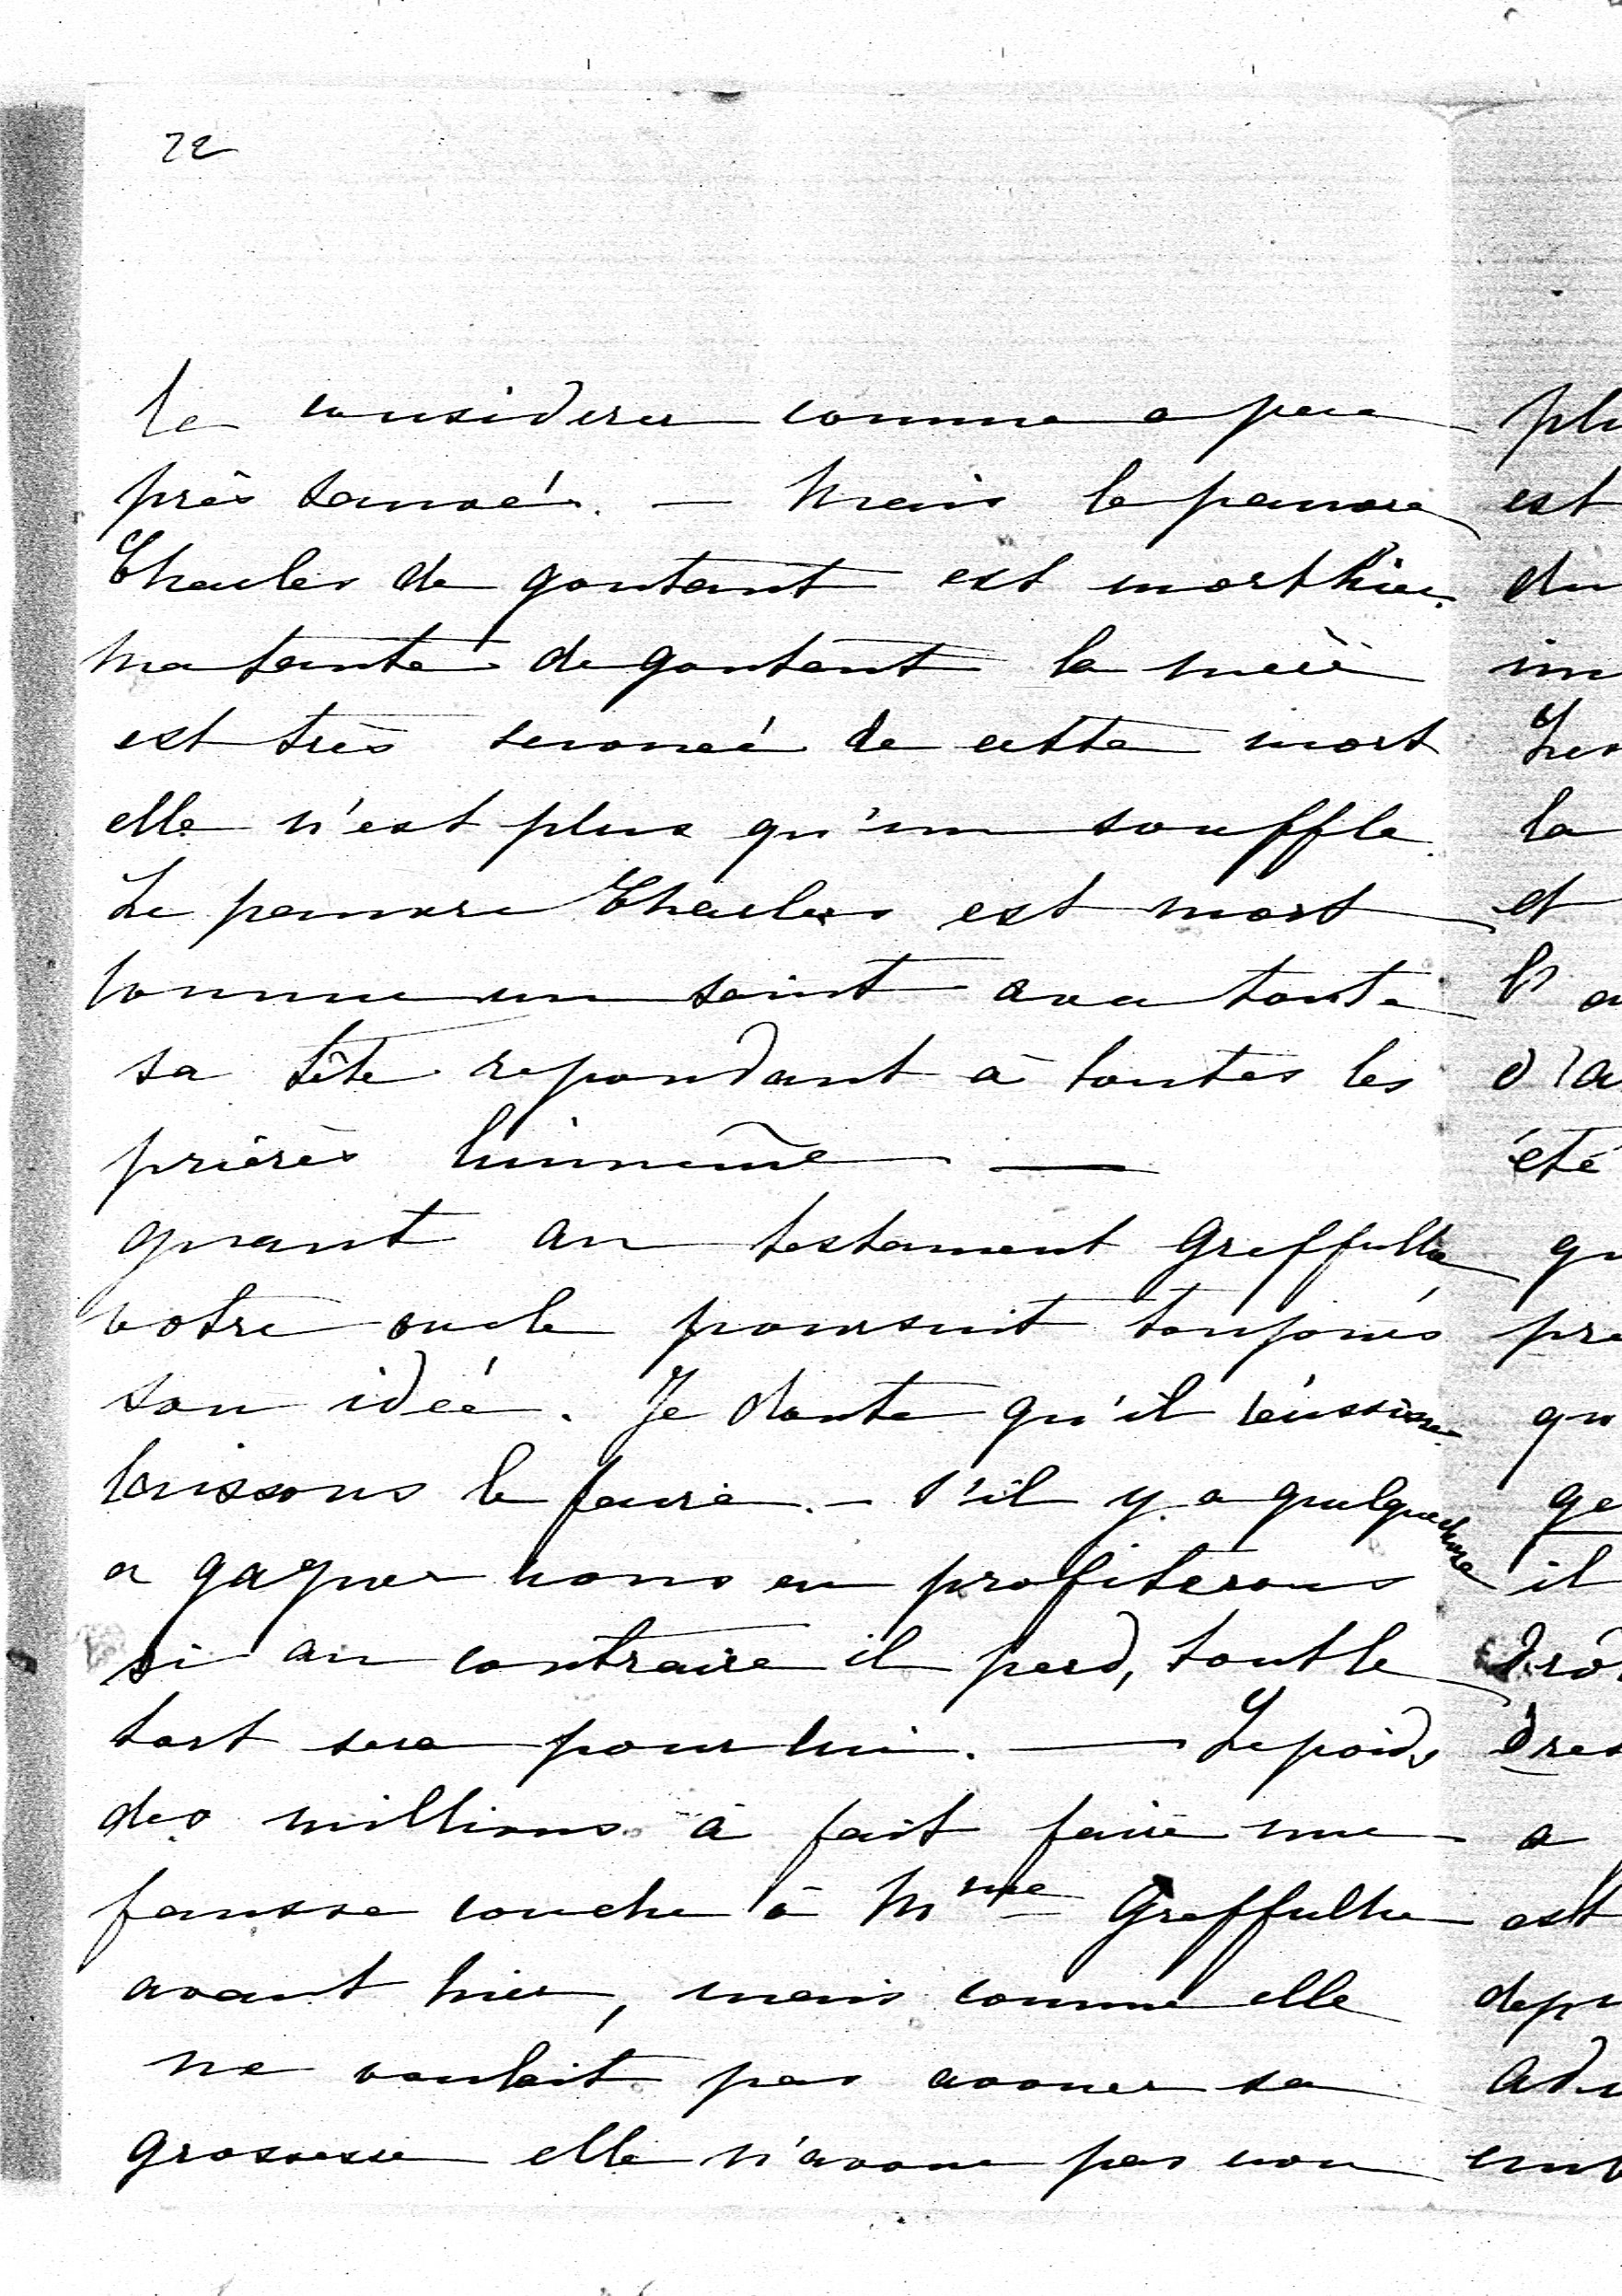 22
le considerer comme a peu
près sauvé. — Mais le pauvre
Charles de gontaut est mort hier.
Ma tante de gontaut la mère
est très secouée de cette mort
elle n'est plus qu'un souffle.
Le pauvre Charles est mort
comme un saint avec toute
sa tête repondant à toutes les
prières luimême —
quant au testament Greffulhe
votre oncle poursuit toujours
son idée. Je doute qu'il réussisse
laissons le faire. — S'il y a quelquechose
a gagner nous en profiterons
si au contraire il perd, tout le
tort sera pour lui. — Le poids
des millions à fait faire une
fausse couche à Mme Greffulhe
avant hier, mais comme elle
ne voulait pas avouer sa
grossesse elle n'avoue pas non
plu
est
du
la
et
été
qu
il
a
est